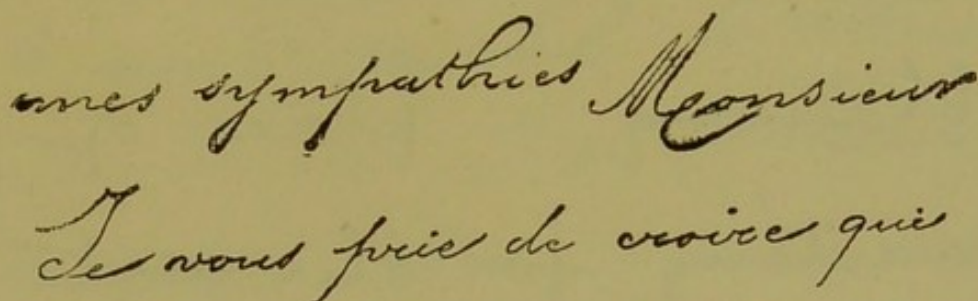 mes sympathies Monsieur
Je vous prie de croire que